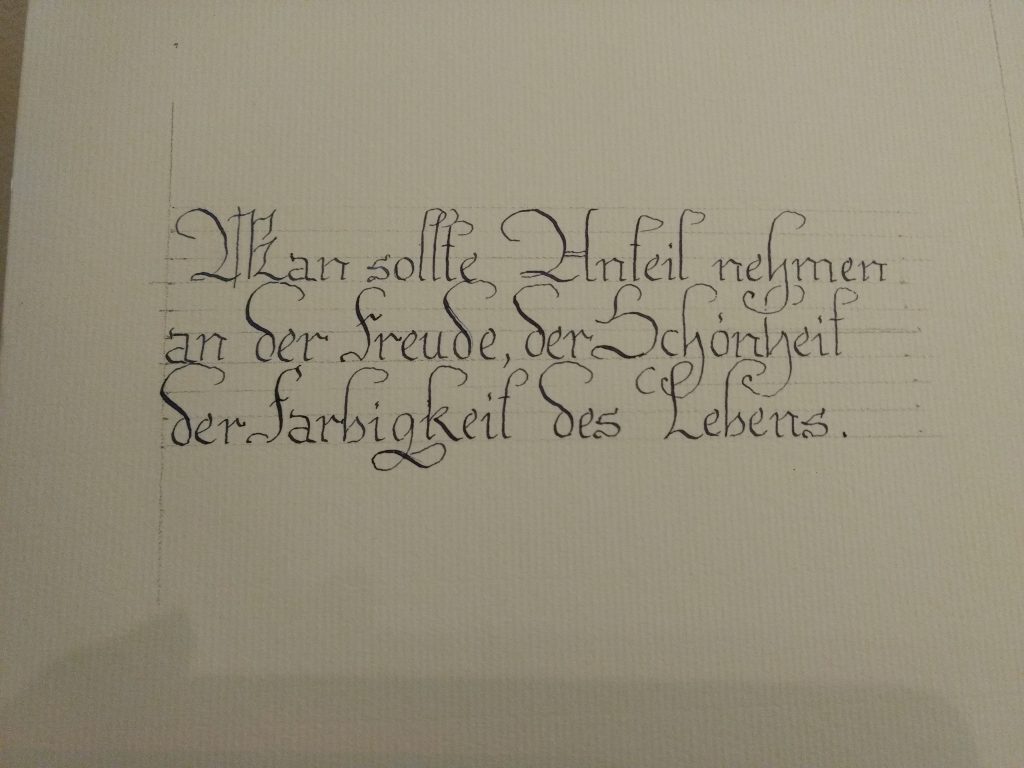 Man sollte Anteil nehmen
an der Freude, der Schönheit
der Farbigkeit des Lebens.